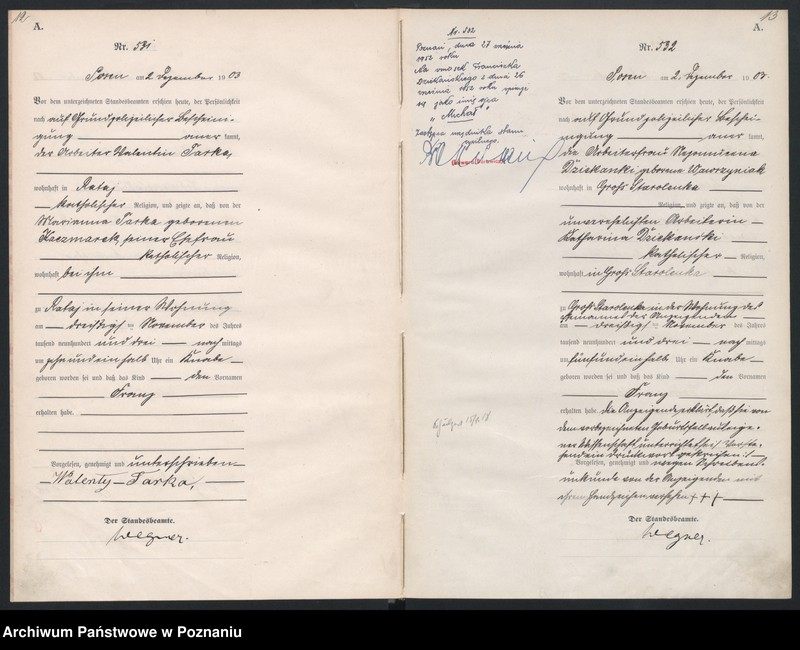 12
A.
Nr. 531
Posen am 2. Dezember 1903
Vor dem unterzeichneten Standesbeamten erschien heute, der Persönlichkeit
nach auf Grund polizeilicher Beschei-
gung — aner kannt,
der Arbeiter Valentin Tarka,
wohnhaft in Rataj
— katholischer Religion, und zeigte an, daß von der
Marianna Tarka geborenen
Kaczmarek, seiner Ehefrau
katholischer Religion,
wohnhaft bei ihm
zu Rataj in seiner Wohnung
am — dreißigsten November des Jahres
tausend neunhundert und drei — nach mittags
um zehn und ein halb Uhr ein Knabe —
geboren worden sei und daß das Kind — den Vornamen
Franz
erhalten habe.
Vorgelesen, genehmigt und unterschrieben
— Walenty — Tarka.
Der Standesbeamte.
Wegner.
13
A.
Nr. 532
Poznań, dnia 27 września
1952 roku
Na wniosek Franciszka
Dziekańskiego z dnia 26
września 1952 roku
się jako imię ojca
„Michał”
Zastępca urzędnika stanu
cywilnego.
Nr. 532
Posen am 2. Dezember 1903
Vor dem unterzeichneten Standesbeamten erschien heute, der Persönlichkeit
nach auf Grund polizeilicher Beschei-
nigung — aner kannt,
die Arbeiterfrau Nepomucena
Dziekanski geborene Waworzyniak
wohnhaft in Groß Starolenka
Religion, und zeigte an, daß von der
unverehelichten Arbeiterin —
Katharina Dziekanski
katholischer — Religion,
wohnhaft in Groß Starolenka
zu Groß Starolenka in der Wohnung des
Ehemannes der Anzeigenden —
am — dreißigsten November des Jahres
tausend neunhundert und drei — nach mittags
um fünf und ein halb Uhr ein Knabe —
geboren worden sei und daß das Kind — den Vornamen
Franz
erhalten habe. die Anzeigende erklärt, daß sie von
dem vorbezeichneten Geburtsfall aus eige-
ner Wissenschaft unterrichtet sei. Vorste-
hend ein Druckwort gestrichen. —
Vorgelesen, genehmigt und wegen Schreibens-
unkunde von der Anzeigenden mit
ihren Handzeichen versehen + + +
Der Standesbeamte.
Wegner.
Archiwum Państwowe w Poznaniu